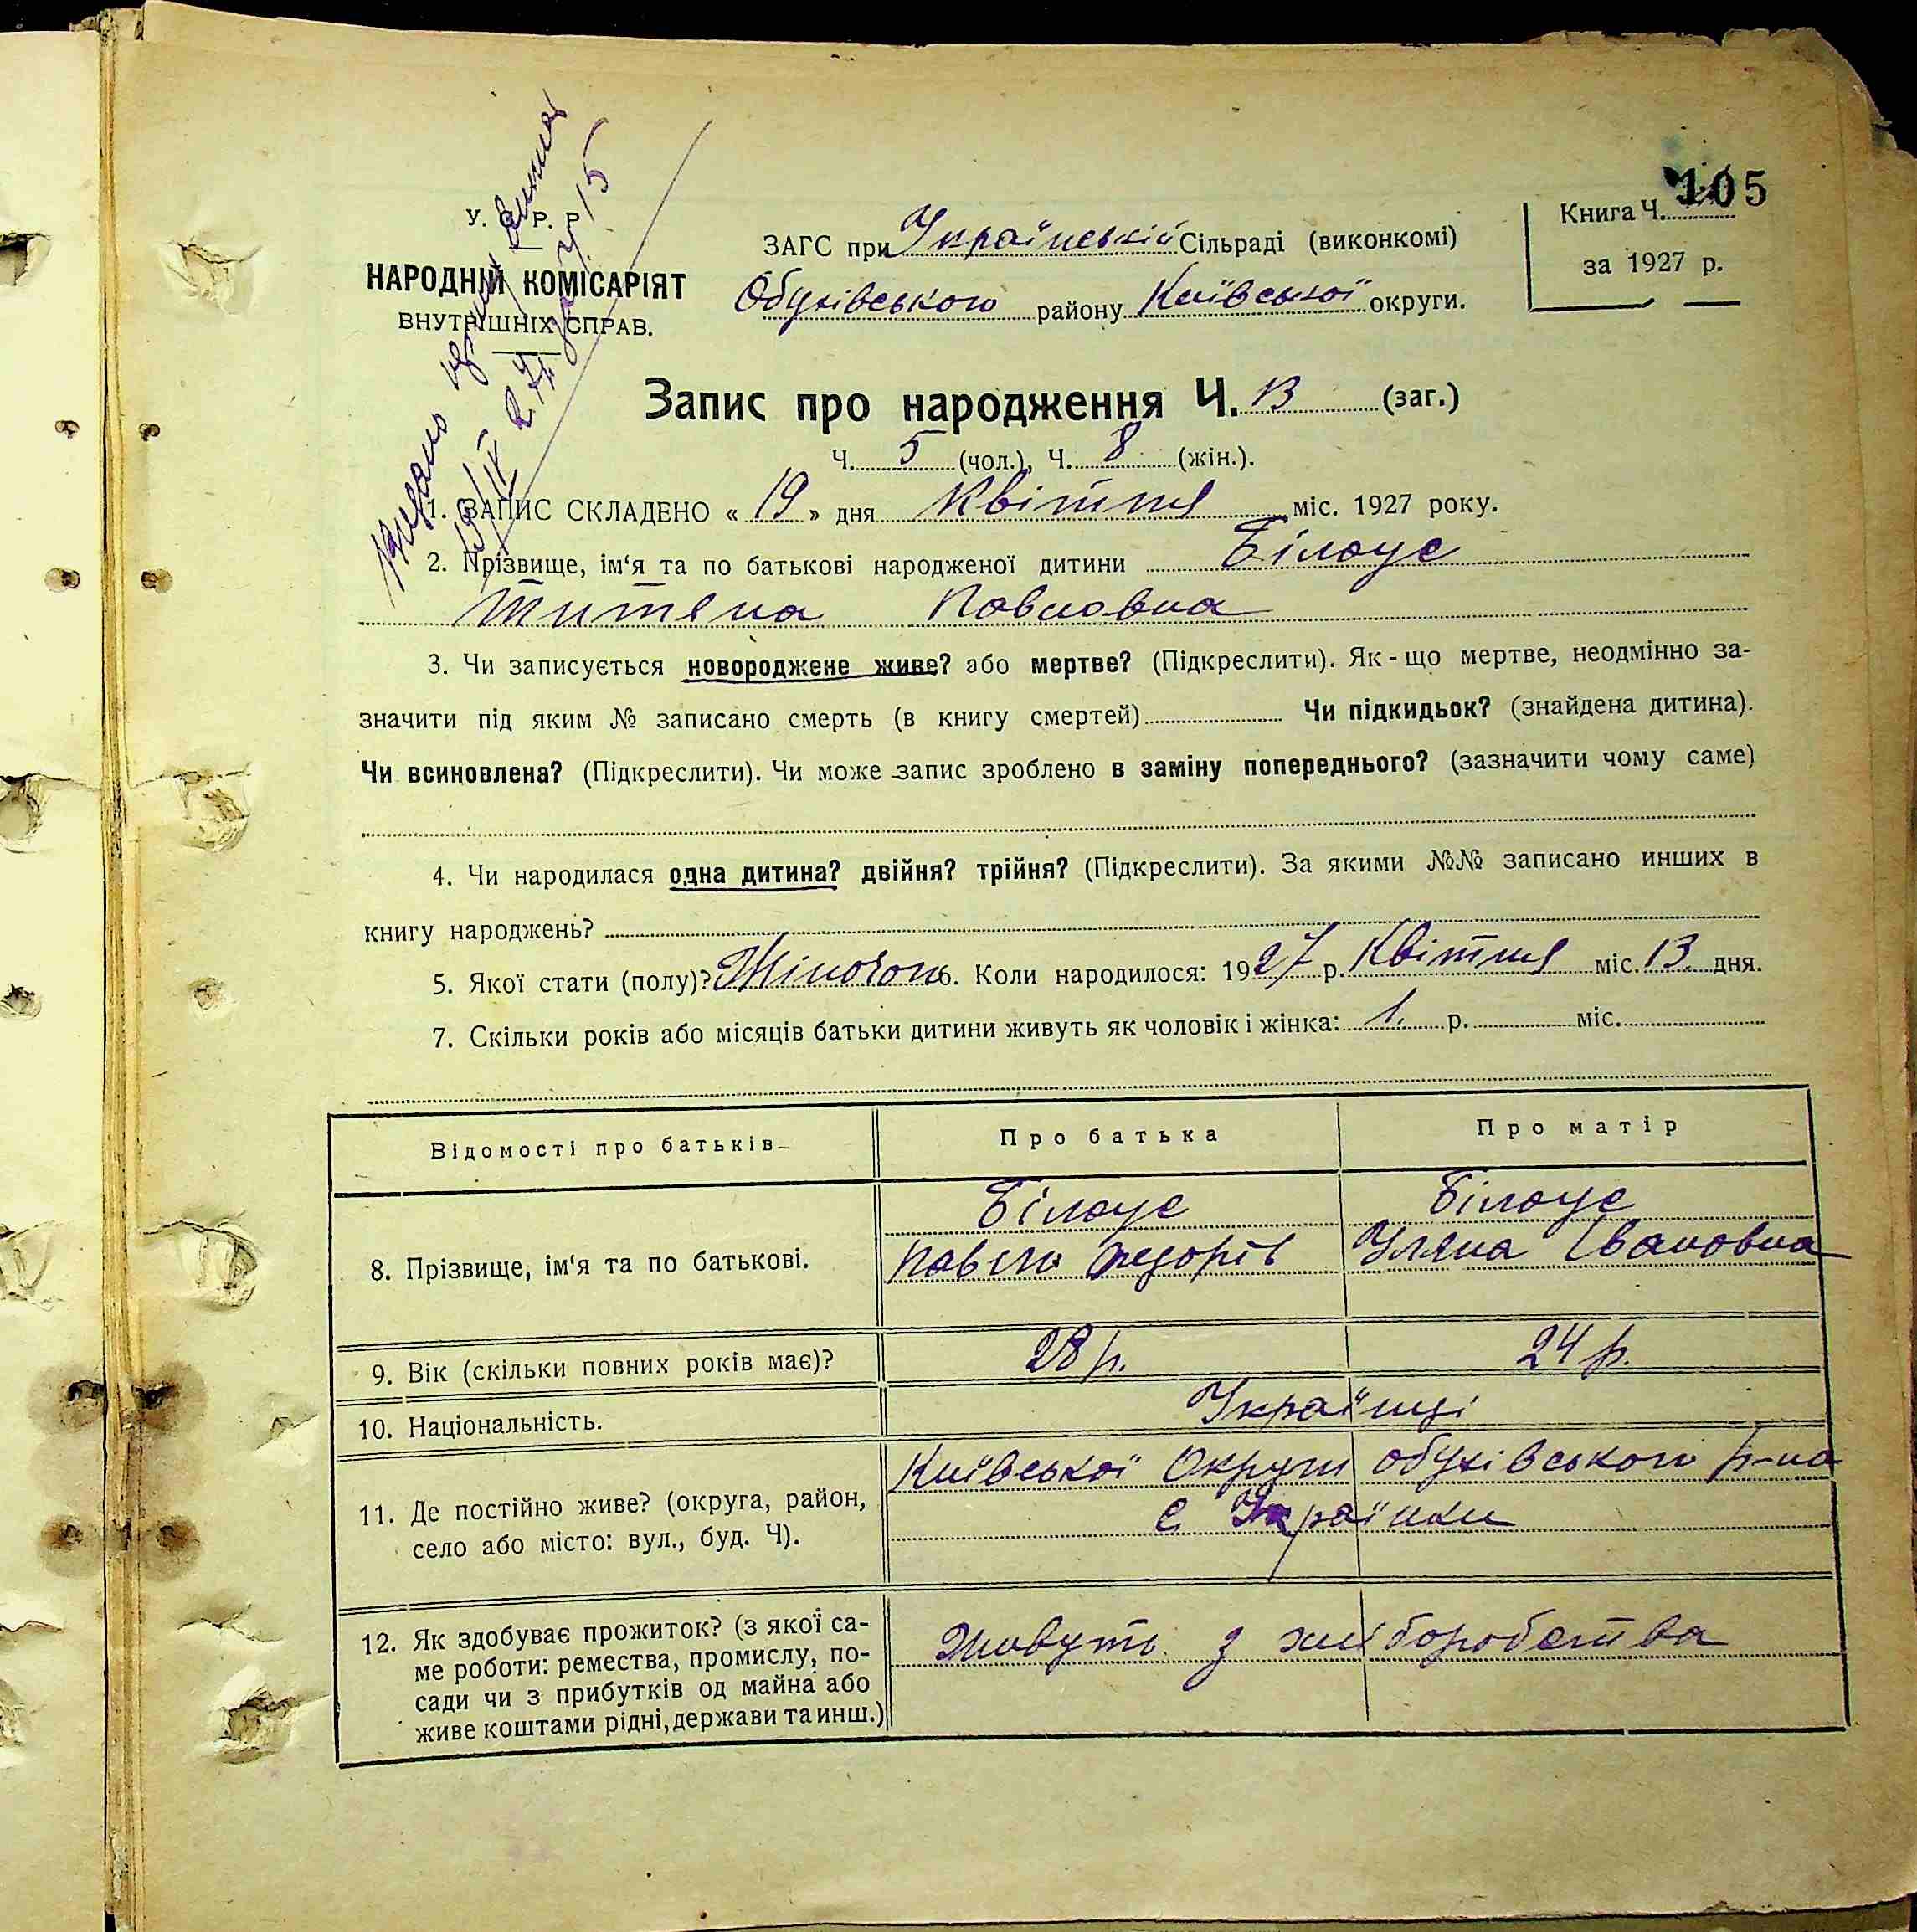 105
У. С. Р. Р
НАРОДНІЙ КОМІСАРІЯТ
ВНУТРІШНІХ СПРАВ.
ЗАГС при Українській Сільраді (виконкомі)
Обухівського району Київської округи.
Книга Ч.
за 1927 р.
Видано
19/IV 27 15
Запис про народження Ч. 13 (заг.)
Ч. 5 (чол.), Ч. 8 (жін.).
1. ЗАПИС СКЛАДЕНО « 19 » дня Квітня міс. 1927 року.
2. Прізвище, ім‘я та по батькові народженої дитини Білоус
Титяна Повловна
3. Чи записується новороджене живе? або мертве? (Підкреслити). Як-що мертве, неодмінно за-
значити під яким № записано смерть (в книгу смертей) Чи підкидьок? (знайдена дитина).
Чи всиновлена? (Підкреслити). Чи може запис зроблено в заміну попереднього? (зазначити чому саме)
4. Чи народилася одна дитина? двійня? трійня? (Підкреслити). За якими №№ записано инших в
книгу народжень?
5. Якої стати (полу)? Жіночого 6. Коли народилося: 1927 р. Квітня міс. 13 дня.
7. Скільки років або місяців батьки дитини живуть як чоловік і жінка: 1. р. міс.
Відомості про батьків Про батька Про матір
8. Прізвище, ім‘я та по батькові. Білоус Білоус
Павло Федорів Уляна Івановна
9. Вік (скільки повних років має)? 28 р. 24 р.
10. Національність. Українці
11. Де постійно живе? (округа, район,
село або місто: вул., буд. Ч).
Київської Округи обухівського р-на
с Українки
12. Як здобуває прожиток? (з якої са-
ме роботи: ремества, промислу, по-
сади чи з прибутків од майна або
живе коштами рідні, держави та инш.)
Живуть з хліборобства